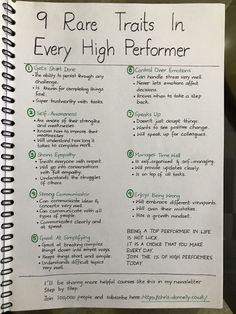 9 Rare Traits In
Every High Performer
1 Gets Shit Done
• The ability to persist through any
challenge.
• Is known for completing things
fast.
• Super trustworthy with tasks.
2 Self-Awareness
• Are aware of their strengths
and weaknesses.
• Known how to improve their
weaknesses.
• Will understand how long it
takes to complete work.
3 Strong Empathy
• Treats everyone with respect.
• Will go into conversations
with full empathy.
• Understands the struggles
of others.
4 Strong Communicator
• Can communicate ideas &
concepts very well.
• Can communicate with all
types of people.
• Communicates clearly and
at speed.
5 Great At Simplifying
• Great at breaking complex
things down into simple ways.
• Keeps things short and simple.
• Understands difficult topics
very well.
6 Control Over Emotions
• Can handle stress very well.
• Never lets emotions affect
decisions.
• Knows when to take a
step back.
7 Speaks Up
• Doesn't just accept things.
• Wants to see positive change.
• Will speak up for others.
8 Manages Time Well
• Is self-organised & self-managing.
• Will provide updates clearly.
• Is on top of all tasks.
9 Enjoys Being Wrong
• Will embrace different viewpoints.
• Will own their mistakes.
• Has a growth mindset.
BEING A TOP PERFORMER IN LIFE
IS NOT LUCK.
IT IS A CHOICE THAT YOU MAKE
EVERY DAY.
JOIN THE 1% OF HIGH PERFORMERS
TODAY.
I'll be sharing more helpful courses like this in my newsletter
Step By Step.
Join 300,000 people and subscribe here: https://chris-donnelly.co.uk/